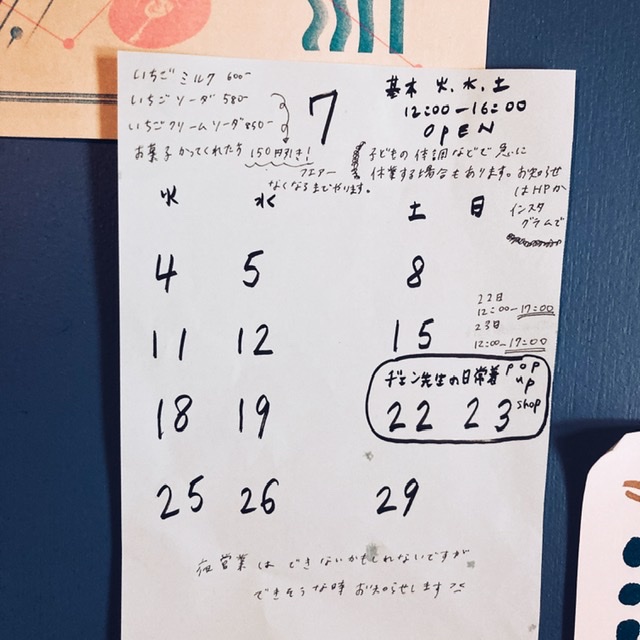 いちごミルク 600-
いちごソーダ 580-
いちごクリームソーダ 850-
お菓子かってくれたら 150円引き!
フェアー
なくなるまでやります。
7
基本 火、水、土
12:00-16:00
OPEN
子どもの体調などで急に
休業する場合もあります。お知らせ
はHPか
インスタ
グラムで
火 水 土 日
4 5 8
22日
12:00-17:00
23日
12:00-17:00
11 12 15
ヂェン先生の日常着 POP
up
shop
18 19 22 23
25 26 29
夜営業はできないかもしれないですが
できそうな時お知らせします